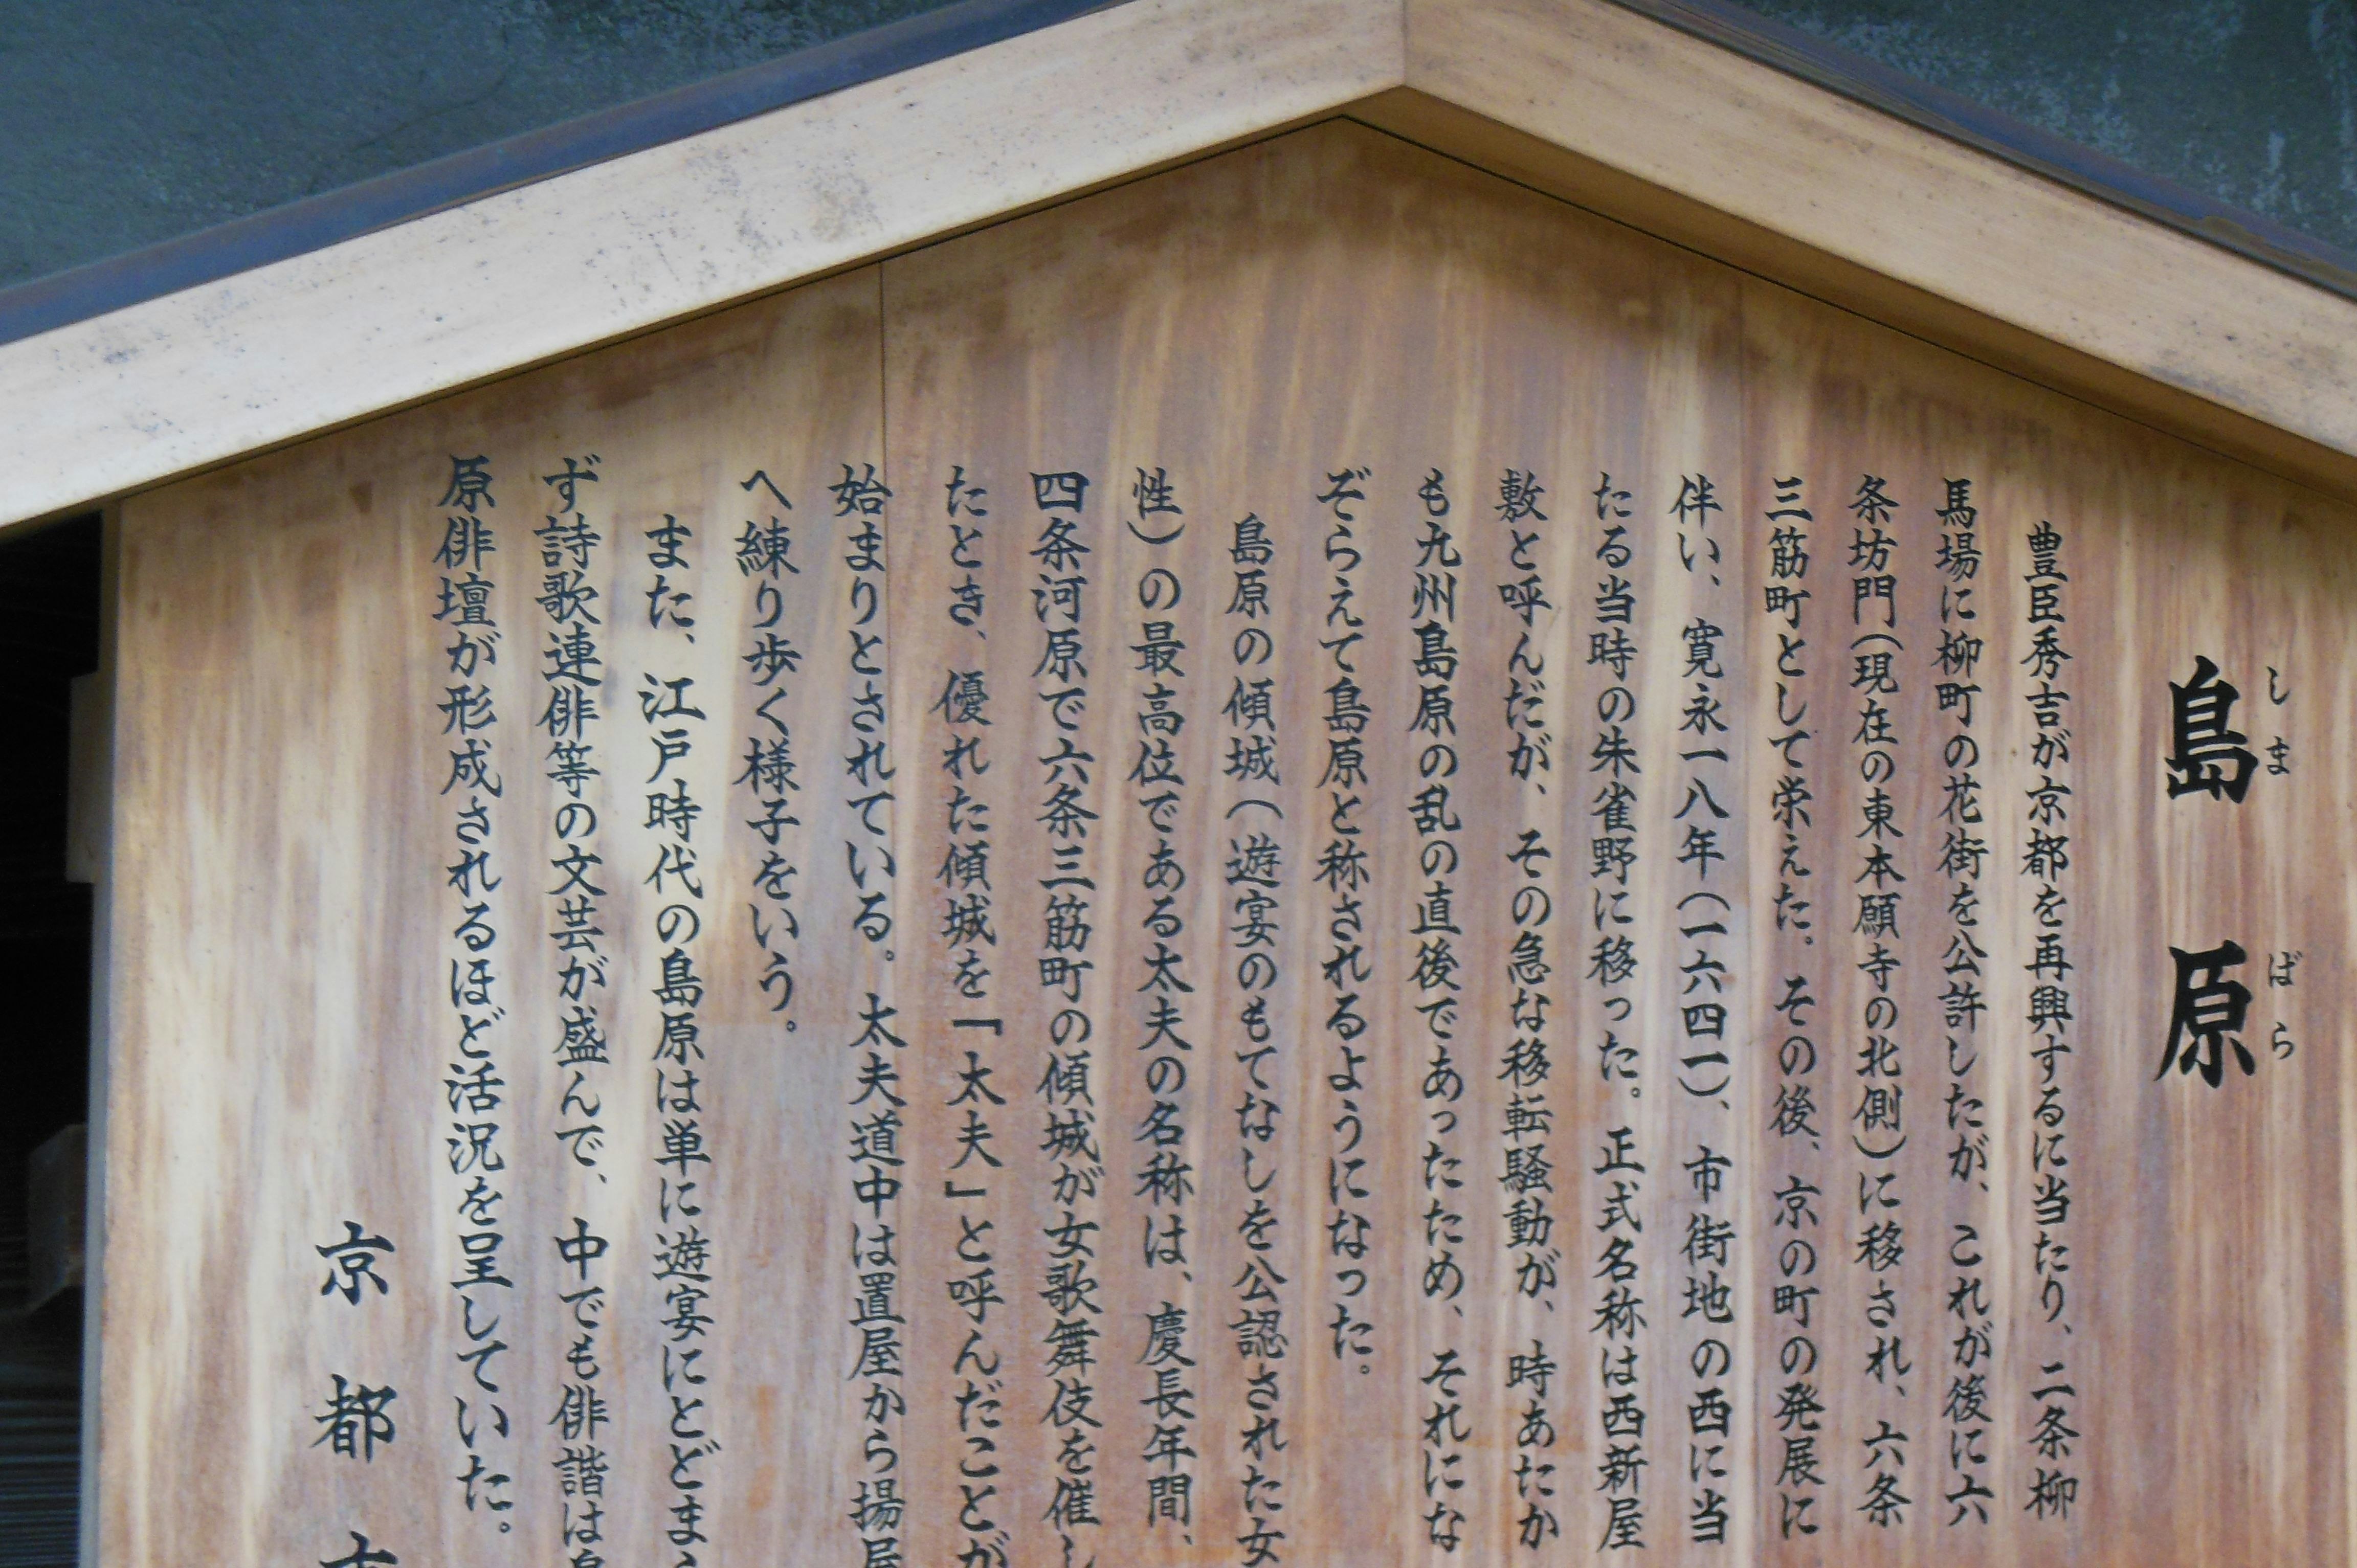 島原
しまばら
豊臣秀吉が京都を再興するに当たり、二条柳
馬場に柳町の花街を公許したが、これが後に六
条坊門(現在の東本願寺の北側)に移され、六条
三筋町として栄えた。その後、京の町の発展に
伴い、寛永一八年(一六四一)、市街地の西に当
たる当時の朱雀野に移った。正式名称は西新屋
敷と呼んだが、その急な移転騒動が、時あたか
も九州島原の乱の直後であったため、それにな
ぞらえて島原と称されるようになった。
島原の傾城(遊宴のもてなしを公認された女
性)の最高位である太夫の名称は、慶長年間、
四条河原で六条三筋町の傾城が女歌舞伎を催し
たとき、優れた傾城を「太夫」と呼んだことが
始まりとされている。太夫道中は置屋から揚屋
へ練り歩く様子をいう。
また、江戸時代の島原は単に遊宴にとどまら
ず詩歌連俳等の文芸が盛んで、中でも俳諧は
原俳壇が形成されるほど活況を呈していた。
京都